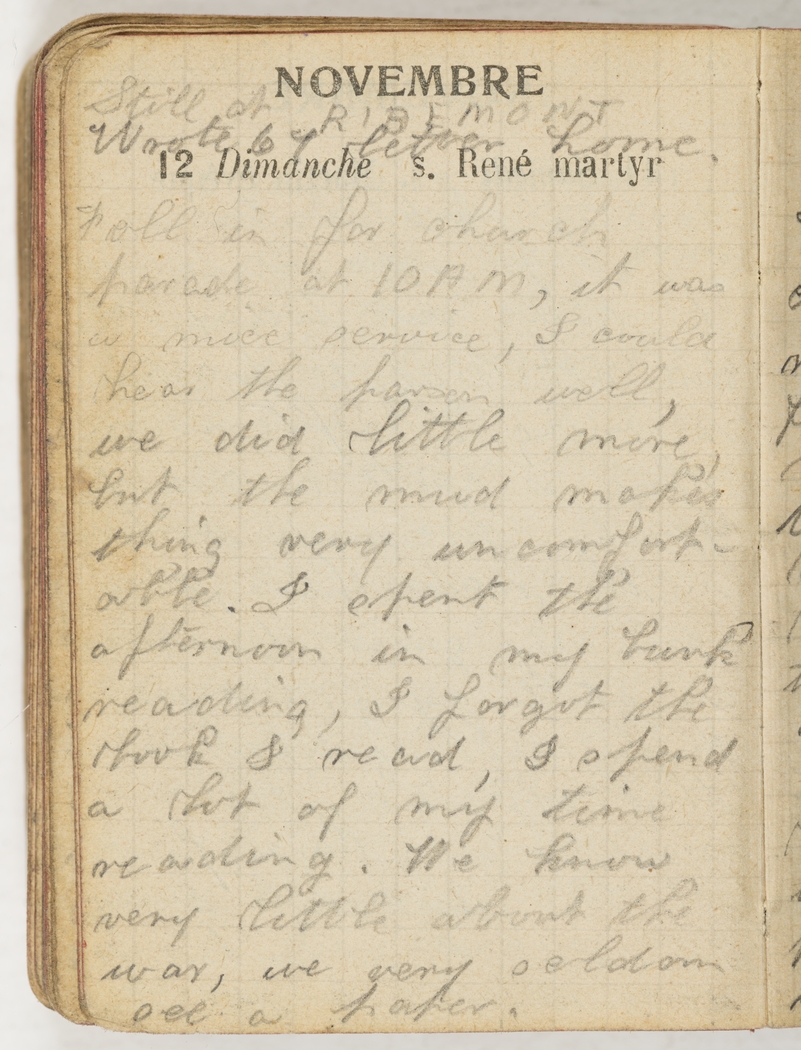 NOVEMBRE
Still at RIBEMONT
Wrote 67 letter home.
12 Dimanche s. René martyr
Fall in for church
parade at 10 AM, it was
a nice service, I could
hear the parson well,
we did little more,
but the mud makes
thing very uncomfort-
able. I spent the
afternoon in my bunk
reading, I forgot the
book I read, I spend
a lot of my time
reading. We know
very little about the
war, we very seldom
see a paper.